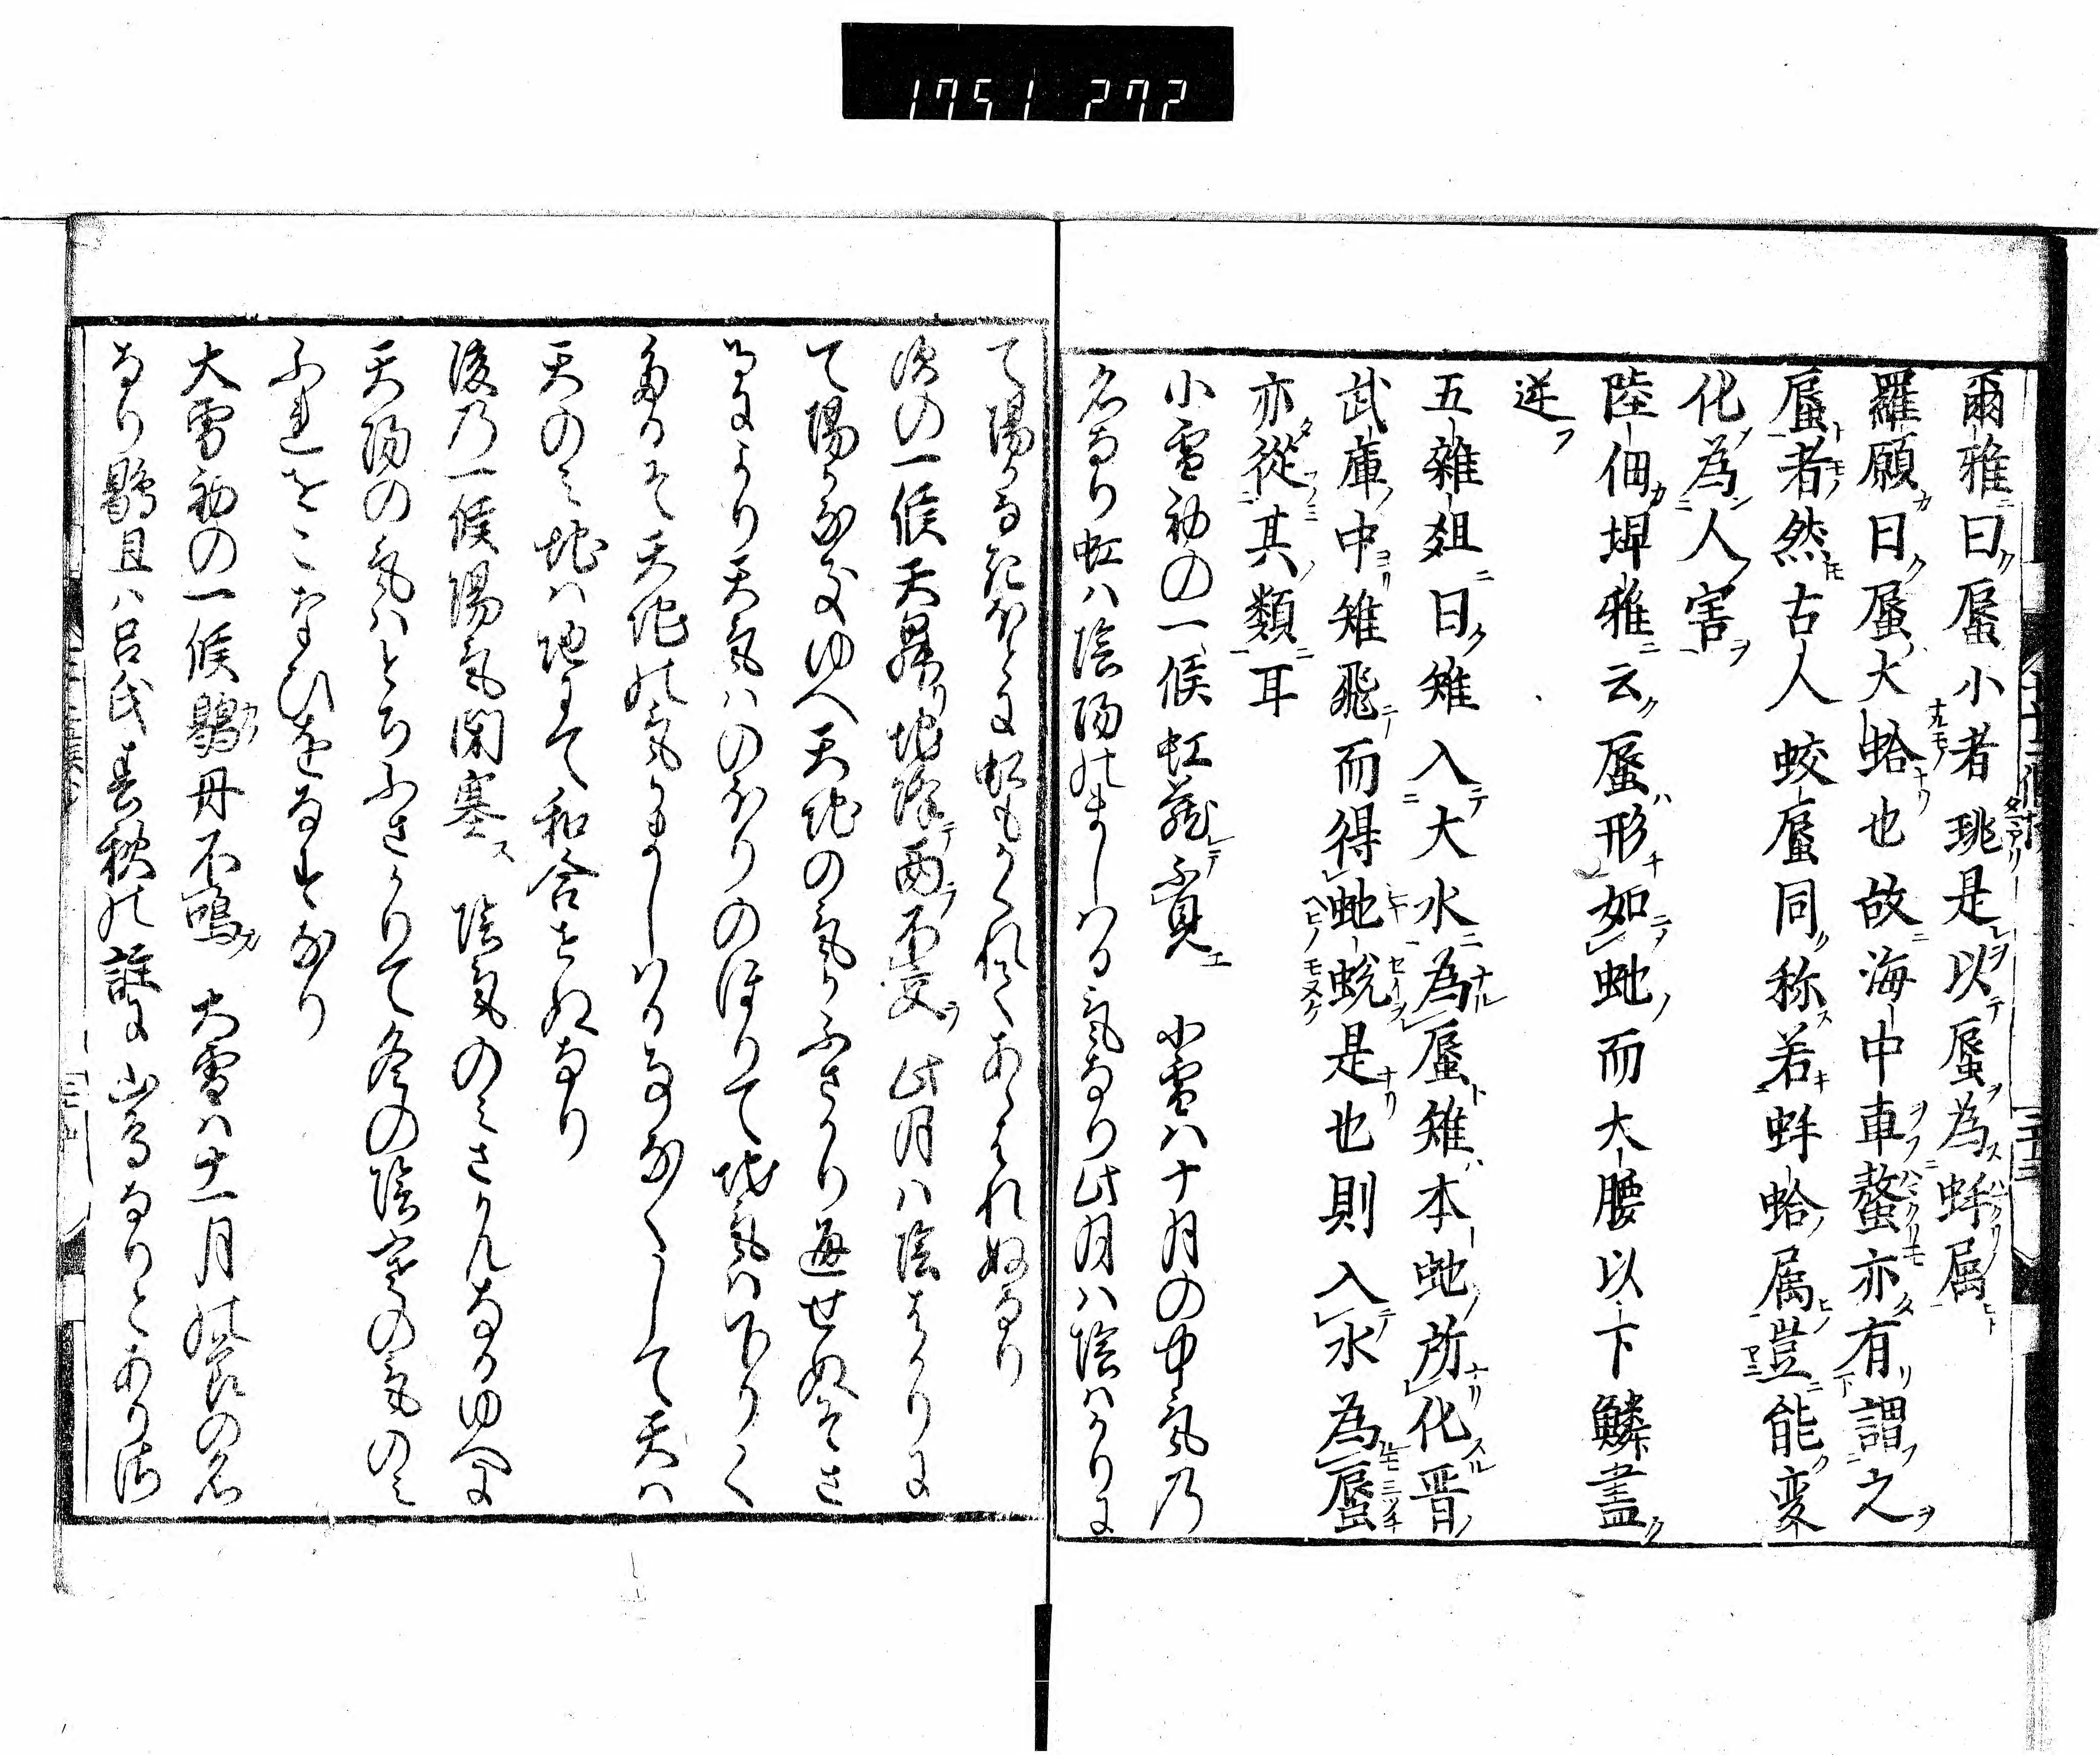 1751 272
爾雅曰蜃小者珧是以蜃為蚌属
羅願曰蜃大蛤也故海中車螯亦有謂之
蜃者然古人蛟蜃同称若蚌蛤属豈能変
化為人害
陸佃埤雅云蜃形如虵而大腰以下鱗盡
逆
五雜爼曰雉入大水為蜃雉本虵所化晋
武庫中雉飛而得虵蛻是也則入水為蜃
亦從其類耳
小雪初の一候虹蔵不見 小雪ハ十月の中気乃
名なり虹ハ陰陽のましハる気なり此月ハ陰はかりに
て陽なきほとに虹もかくれてあらはれぬなり
次の一候天昇地降而不交 此月ハ陰はかりに
て陽なきゆへ天地の気ふさかり通せぬそさ
あるより天気ハのほりのほりて地気ハ下りく
たるそ天地の気ましハる事なくして天ハ
天のミ地ハ地にて和合せぬなり
後乃一候陽気閉塞 陰気のミさかんなるゆへに
天陽の気ハとちふさかりて冬の陰寒の気のミ
ふれをこなひをなすなり
大雪初の一候鶡丹不鳴 大雪ハ十一月の節の名
なり鶡且ハ呂氏春秋の註に山鳥なりとあり